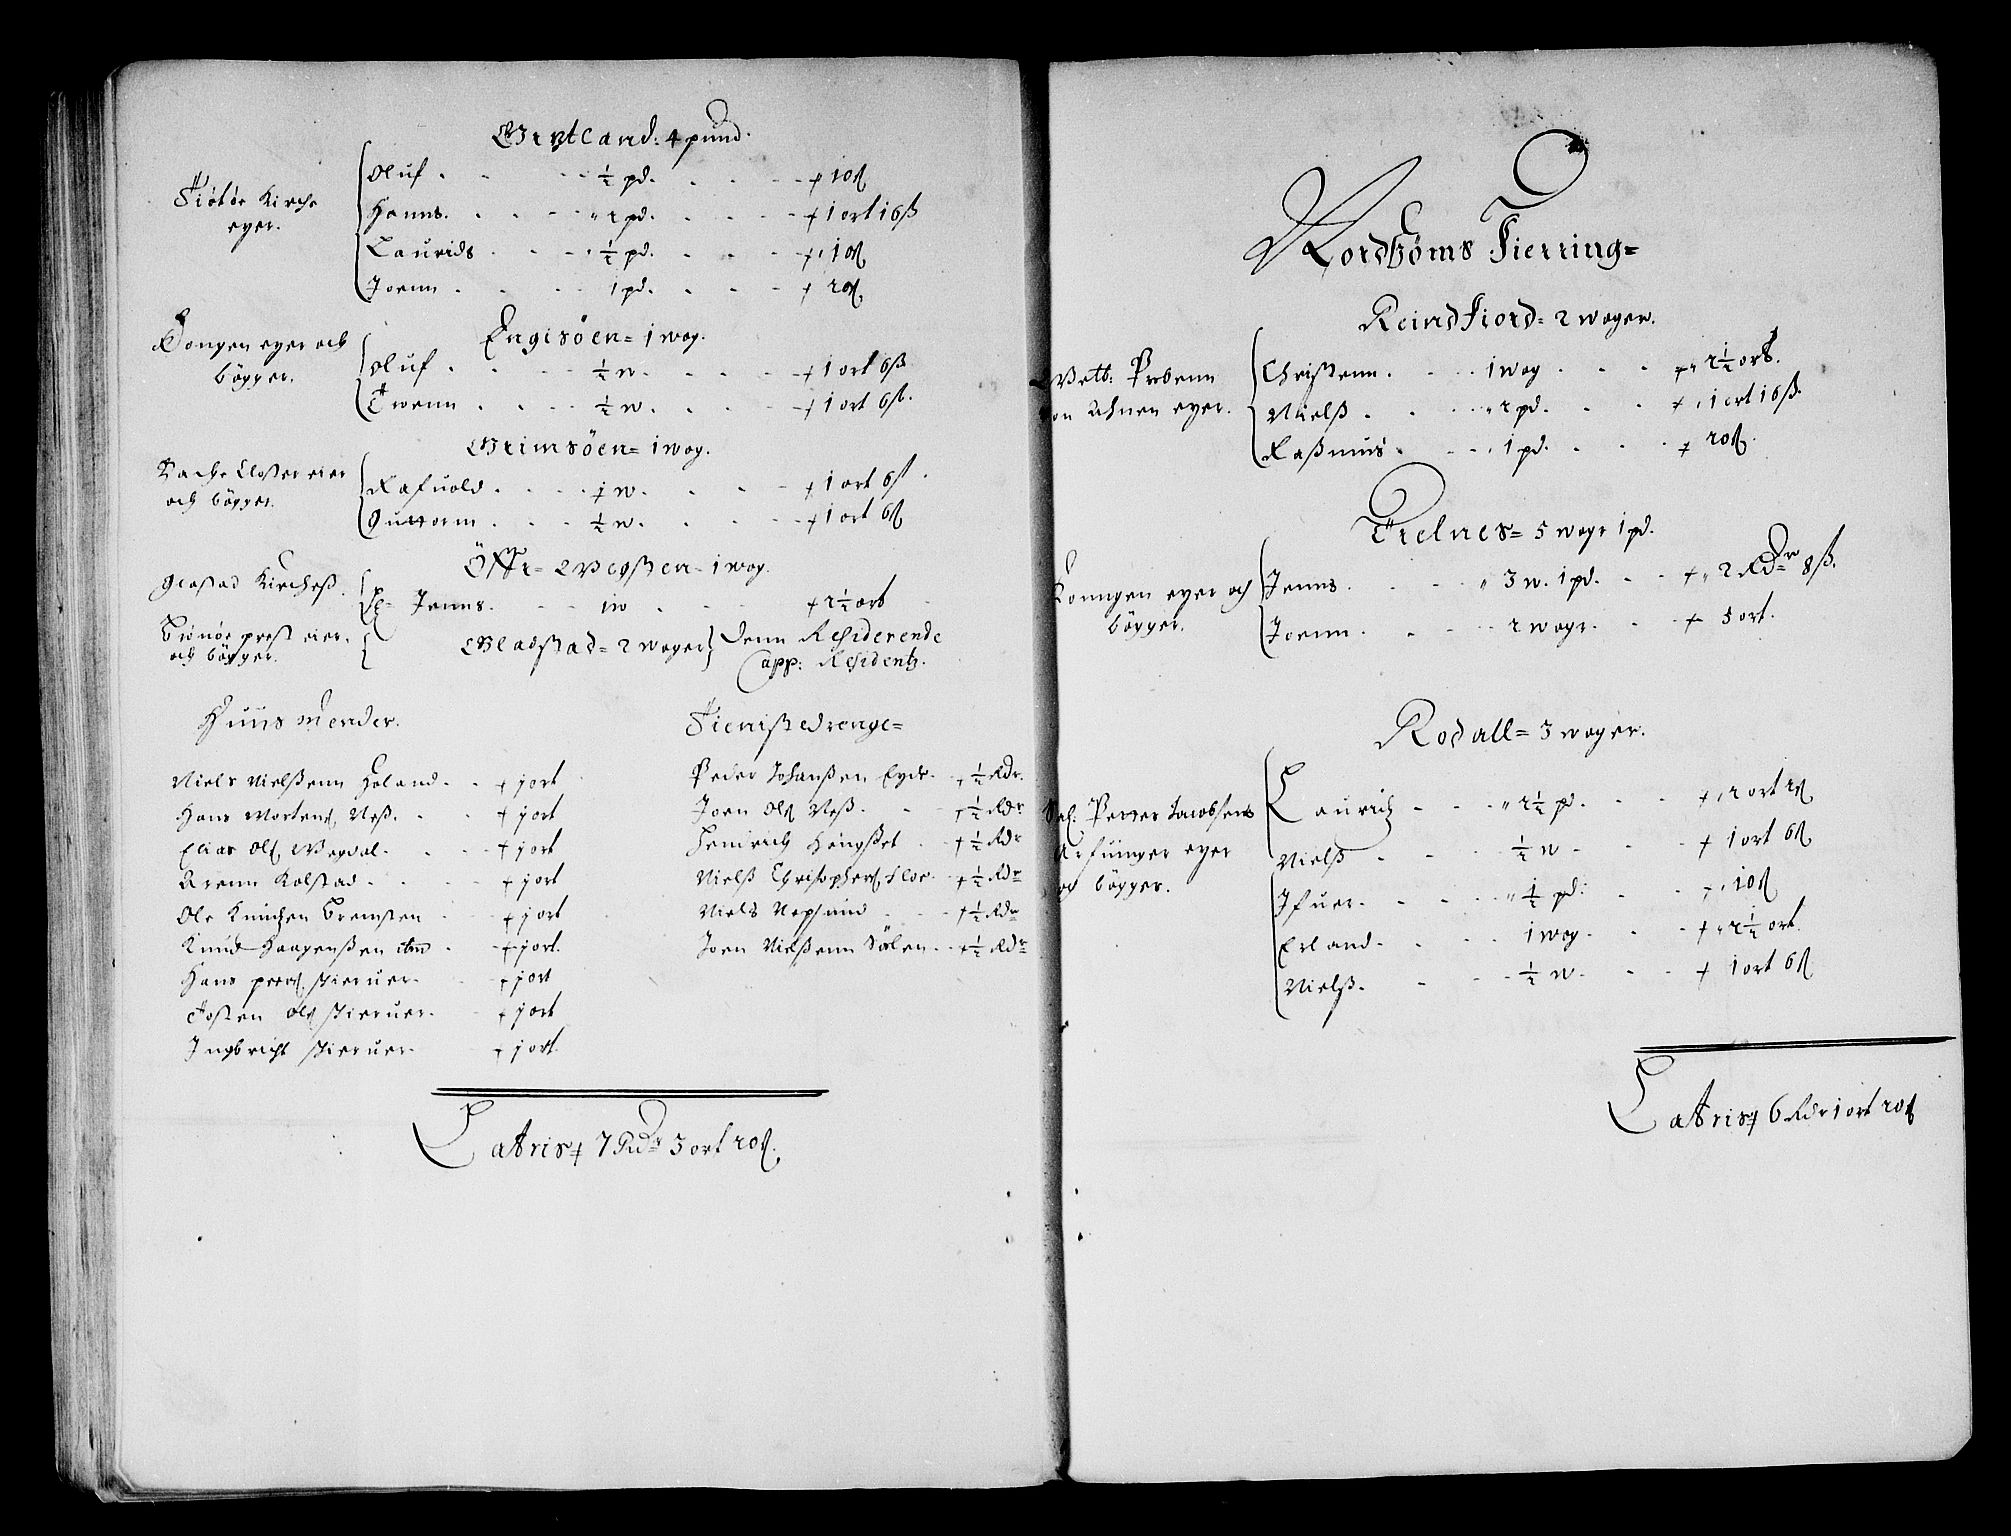 Gimtland: 4 pund.
Tiötöe Kirche eyer.
Oluf . . . ½ pd. . . . 10ß
Hanns. . . . 2 pd. . . . 1 ort 16ß
Laurids . . . ½ pd. . . . 10ß
Joenn . . . 1 pd. . . . 20ß
Engisöen= 1 wog.
Kongen eyer och bögger.
Oluf . . . ½ w. . . . 1 ort 6ß
Troenn . . . ½ w. . . . 1 ort 6ß.
Grimsöen= 1 wog.
Bache Closter eier och bögger.
Rafuold . . . ½ w. . . . 1 ort 6ß.
Guttorm . . . ½ w. . . . 1 ort 6ß
Öffr= Vegsten= 1 wog.
Glostad Kircheß.
Jenns. . . . 1 w . . . 2½ ort
Brönöe prest eier. och bögger.
Gladstad= 2 woger
Denn Residerende
Capp: Residentz.
Huus mender.
Niels Nielßenn Holand. . . 1 ort
Hans Mortens. Neß. . . . 1 ort
Elias Ols. Wegdal. . . . 1 ort
Arenn Kolstad. . . . 1 ort
Ole Knudsen Bremsten . . 1 ort
Knud Haagenßen . . 1 ort.
Hans Peders. Stieruer. . 1 ort
Tosten Ols. Stieruer. . 1 ort
Ingbricht Stieruer. 1 ort.
Tienistedrenge=
Peder Johanßen Eyde. . ½ Rdr.
Joen Ols. Neß. . . ½ Rdr
Henirich Hongsset . . ½ Rdr
Nielß Christophers. Floe. . ½ Rdr
Niels Vepsund . . . ½ Rdr
Joen Nielßenn Sörlen. . ½ Rdr
Latris 7 Rdr 3 ort 20ß.
Nordhöms Fierring=
Reindfiord= 2 woger.
Welb: Prebenn von Ahnen eyer.
Christenn. . . . 1 wog . . . 2½ ort.
Nielß . . . 2 pd. . . . 1 ort 16ß.
Raßmus. . . . 1 pd. . . . 20ß.
Trelnes= 5 wogr 1 pd.
Konngen eyer och bögger.
Jenns. . . . 3 w. 1 pd. . . 2 Rdr 8ß.
Joenn. . . . 2 wogr. . . . 5 ort.
Rodall= 3 woger.
Sal: Petter Jacobsens Arfuinger eyer och bögger.
Lauritz . . . 2½ pd. . . . 2 ort 2ß
Nielß . . . ½ w . . . 1 ort 6ß
Ifuer. . . . ½ pd: . . . 10ß
Erland. . . . 1 wog . . . 2½ ort.
Nielß. . . . ½ w. . . . 1 ort 6ß
Latris 6 Rdr 1 ort 20ß